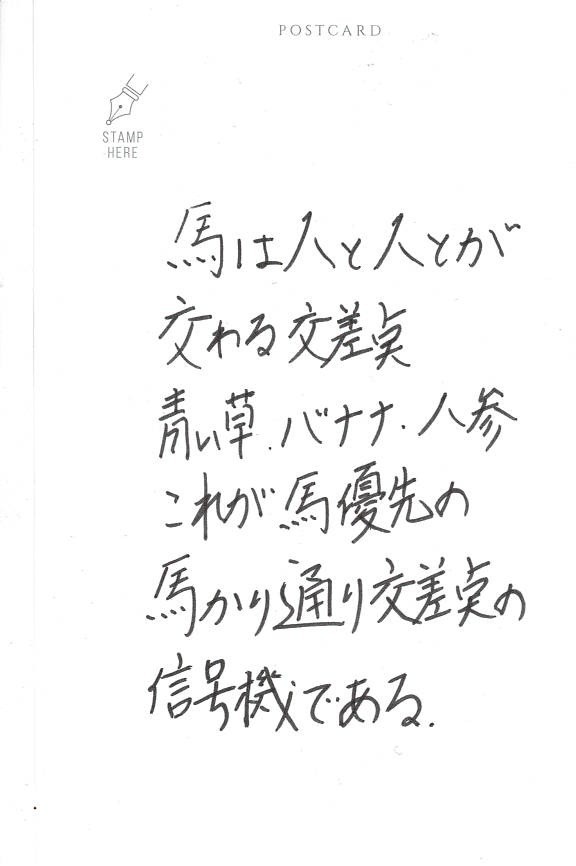 POSTCARD
STAMP
HERE
馬は人と人とが
交わる交差点
青い草.バナナ.人参
これが馬優先の
馬かり通り交差点の
信号機である.